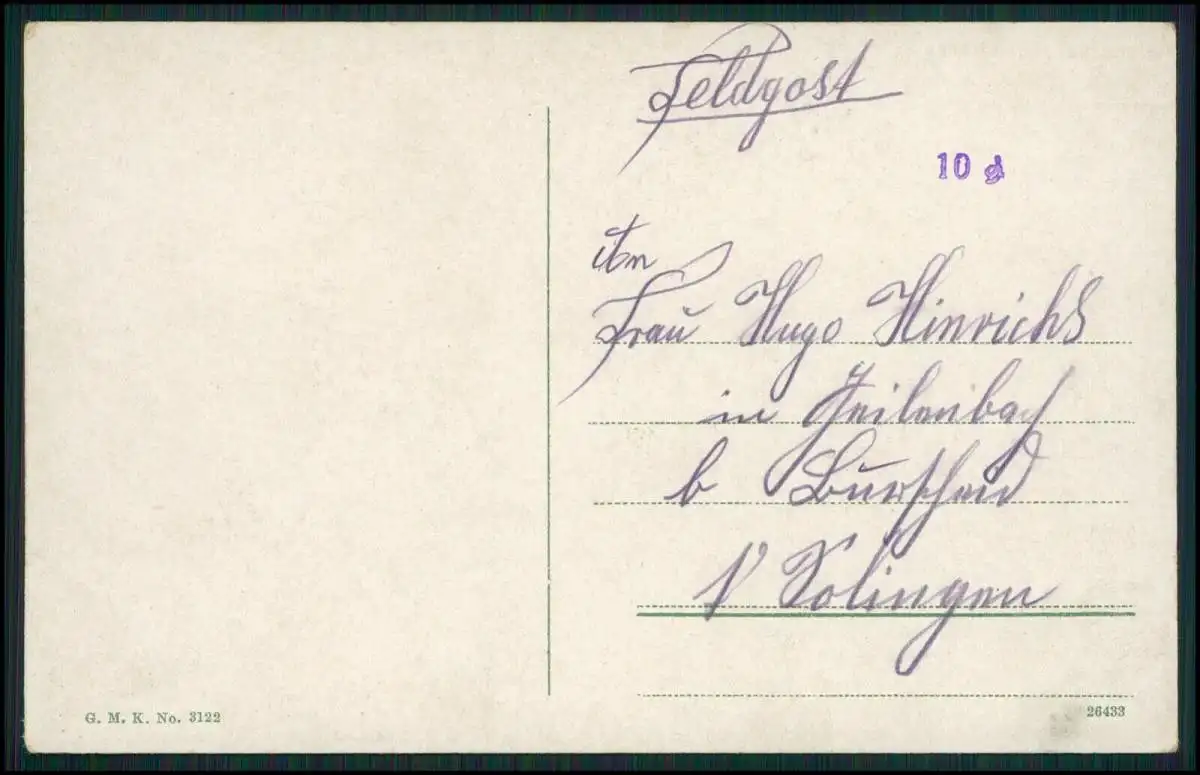 Feldpost
10 ₰
An
Frau Hugo Hinrichs
in Heilenbach
b Burscheid
Solingen
G. M. K. No. 3122
26433